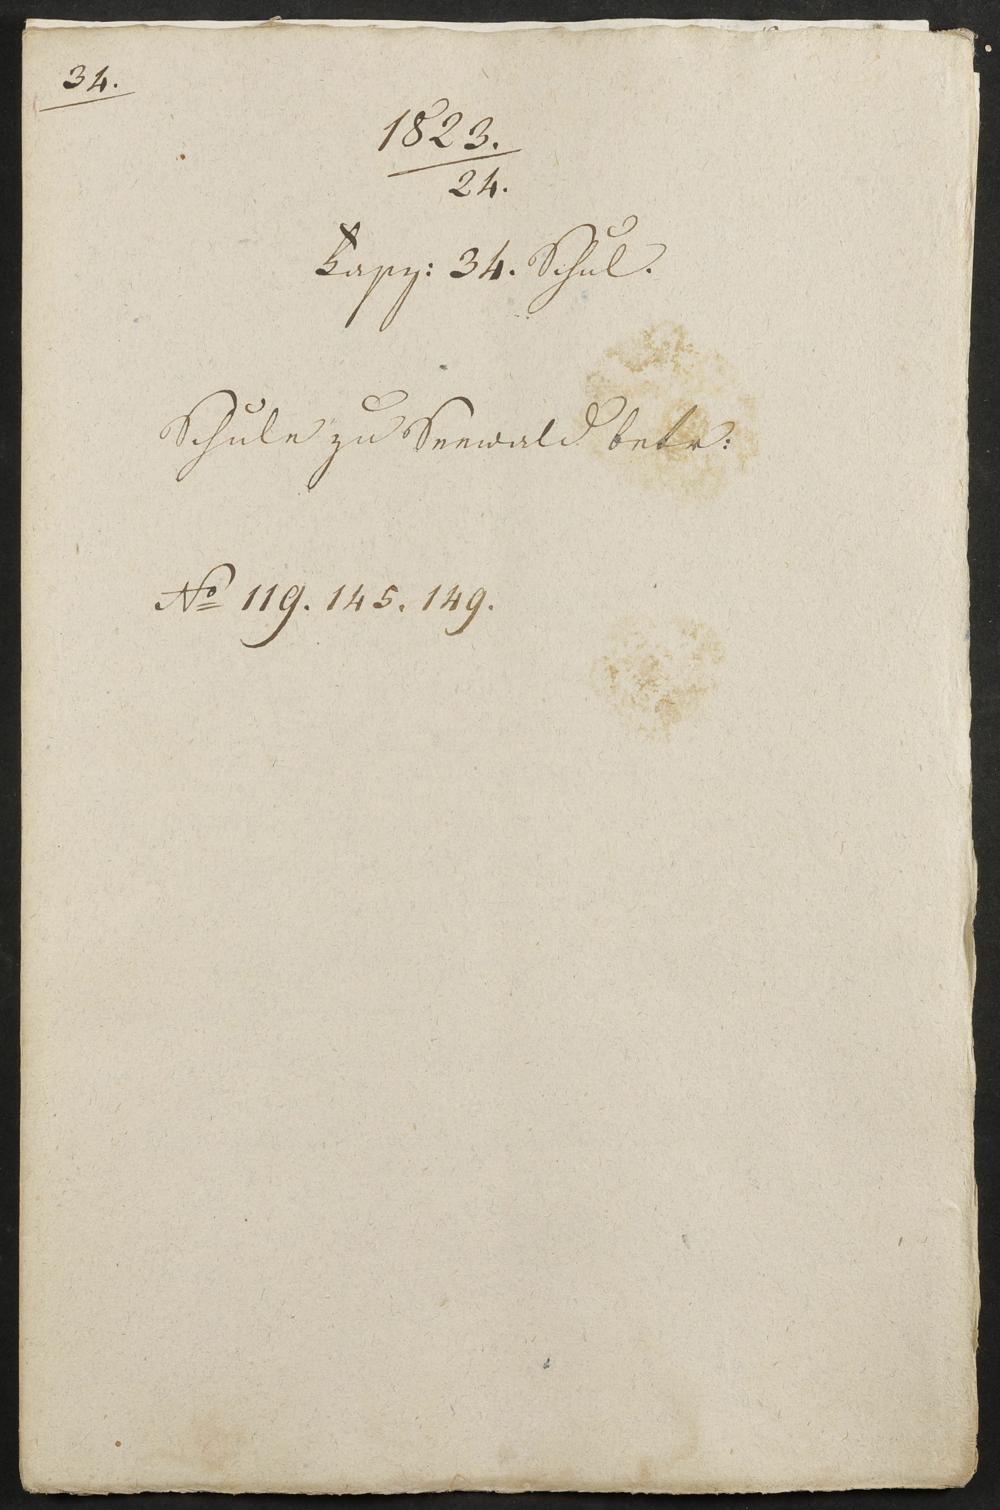 34.
1823.
24.
Kapz: 34. Schul.
Schule zu Seewald betr:
No 119. 145. 149.